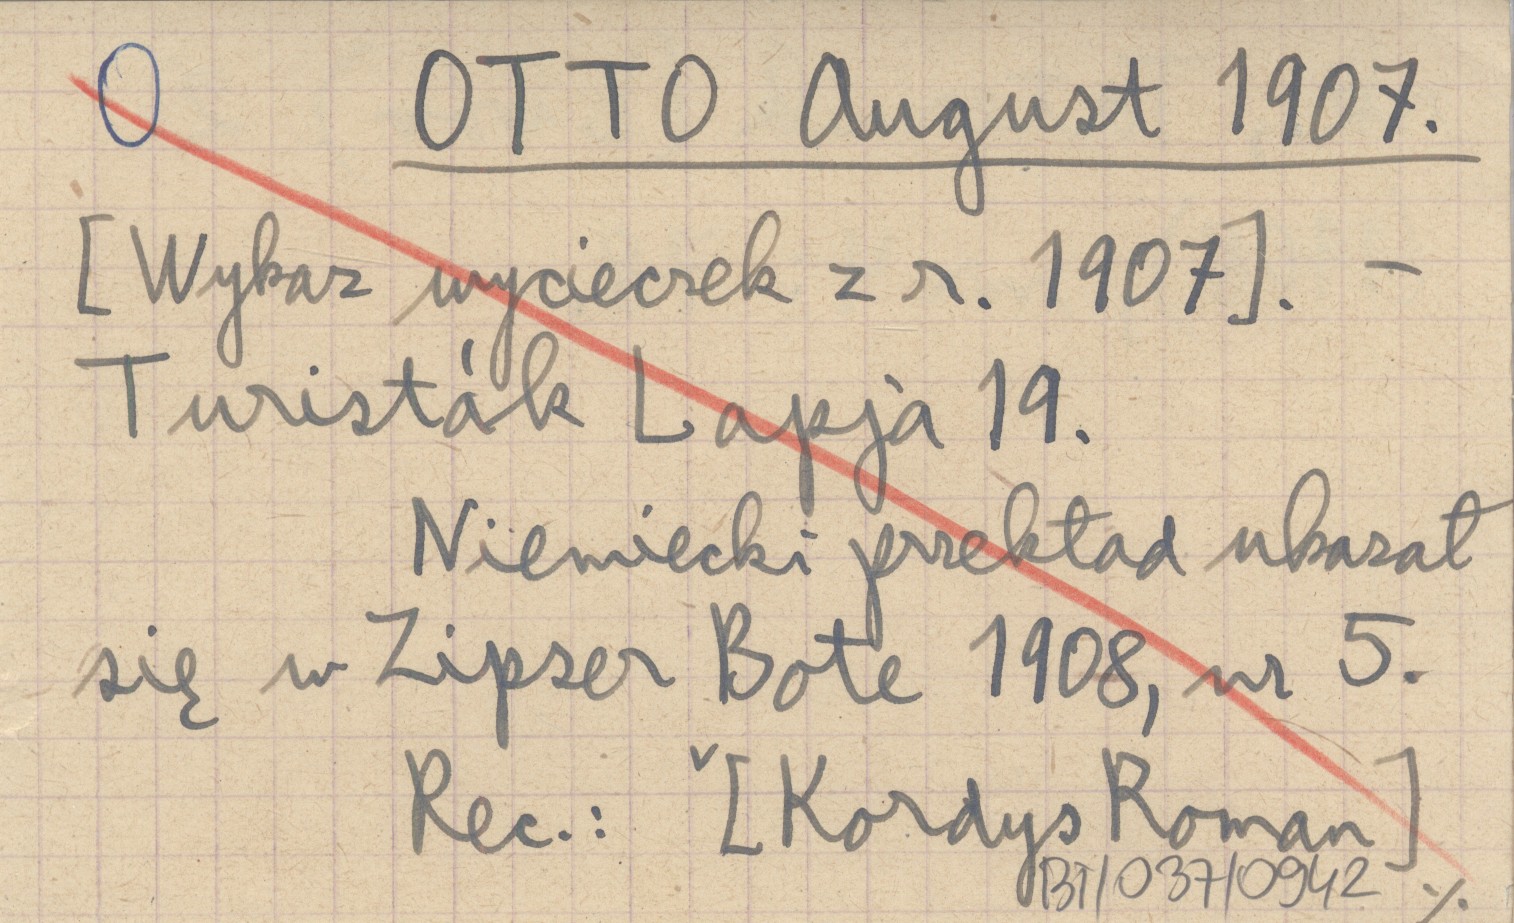 O OTTO August 1907.
[Wykaz wycieczek z r. 1907]. –
Turisták Lapja 19.
Niemiecki przekład ukazał
się w Zipser Bote 1908, nr 5.
Rec.: ˅[Kordys Roman]
BT/037/0942 ./.